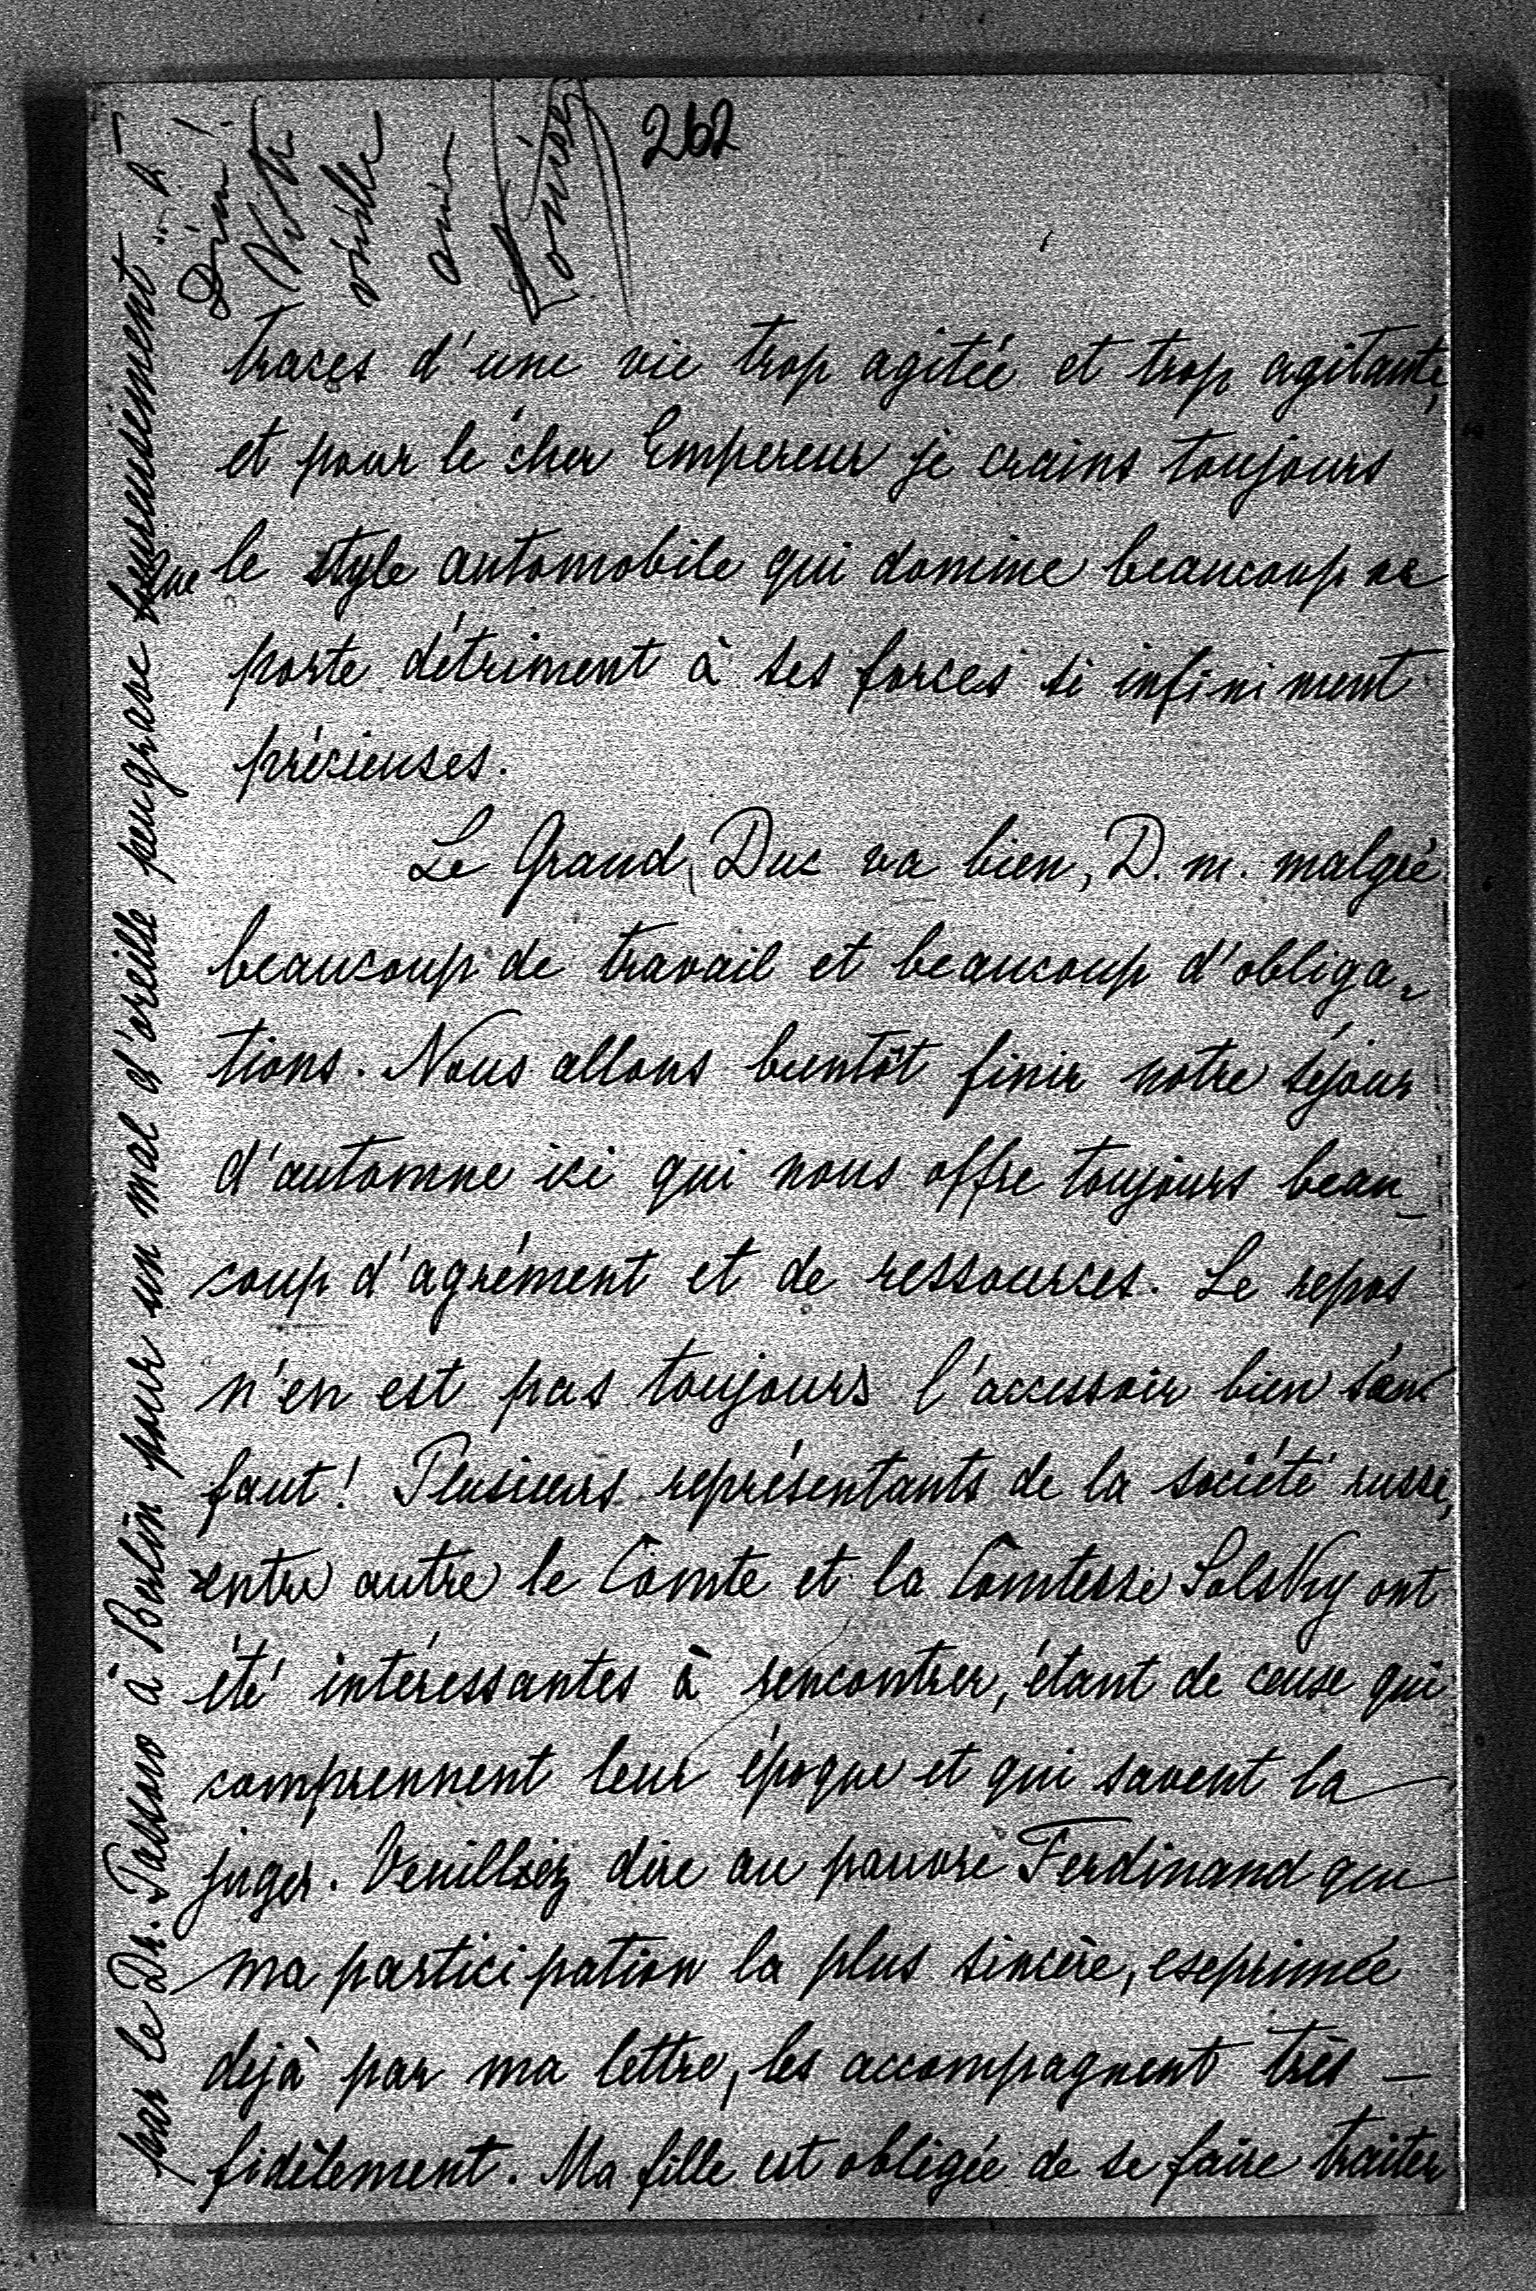 262
traces d'une vie trop agitée et trop agitante,
et pour le cher Empereur je crains toujours
que le style automobile qui domine beaucoup ne
porte détriment à ses forces si infiniment
précieuses.
Le Grand Duc va bien, D. m. malgré
beaucoup de travail et beaucoup d'obliga-
tions. Nous allons bientôt finir notre séjour
d'automne ici qui nous offre toujours beau-
coup d'agrément et de ressources. Le repos
n'en est pas toujours l'accessoir bien s'en
faut! Plusieurs représentants de la société russe,
entre autre le Comte et la Comtesse Solsky ont
été intéressantes à rencontrer, étant de ceuse qui
comprennent leur époque et qui savent la
juger. Veuilliez dire au pauvre Ferdinand que
ma participation la plus sincère, eseprimée
dejà par ma lettre, les accompagnent très
fidèlement. Ma fille est obligée de se faire traiter
par le Dr. Passow à Berlin pour un mal d'oreille peu grave heureusement à
Dieu!
Votre
vieille
amie
Louise